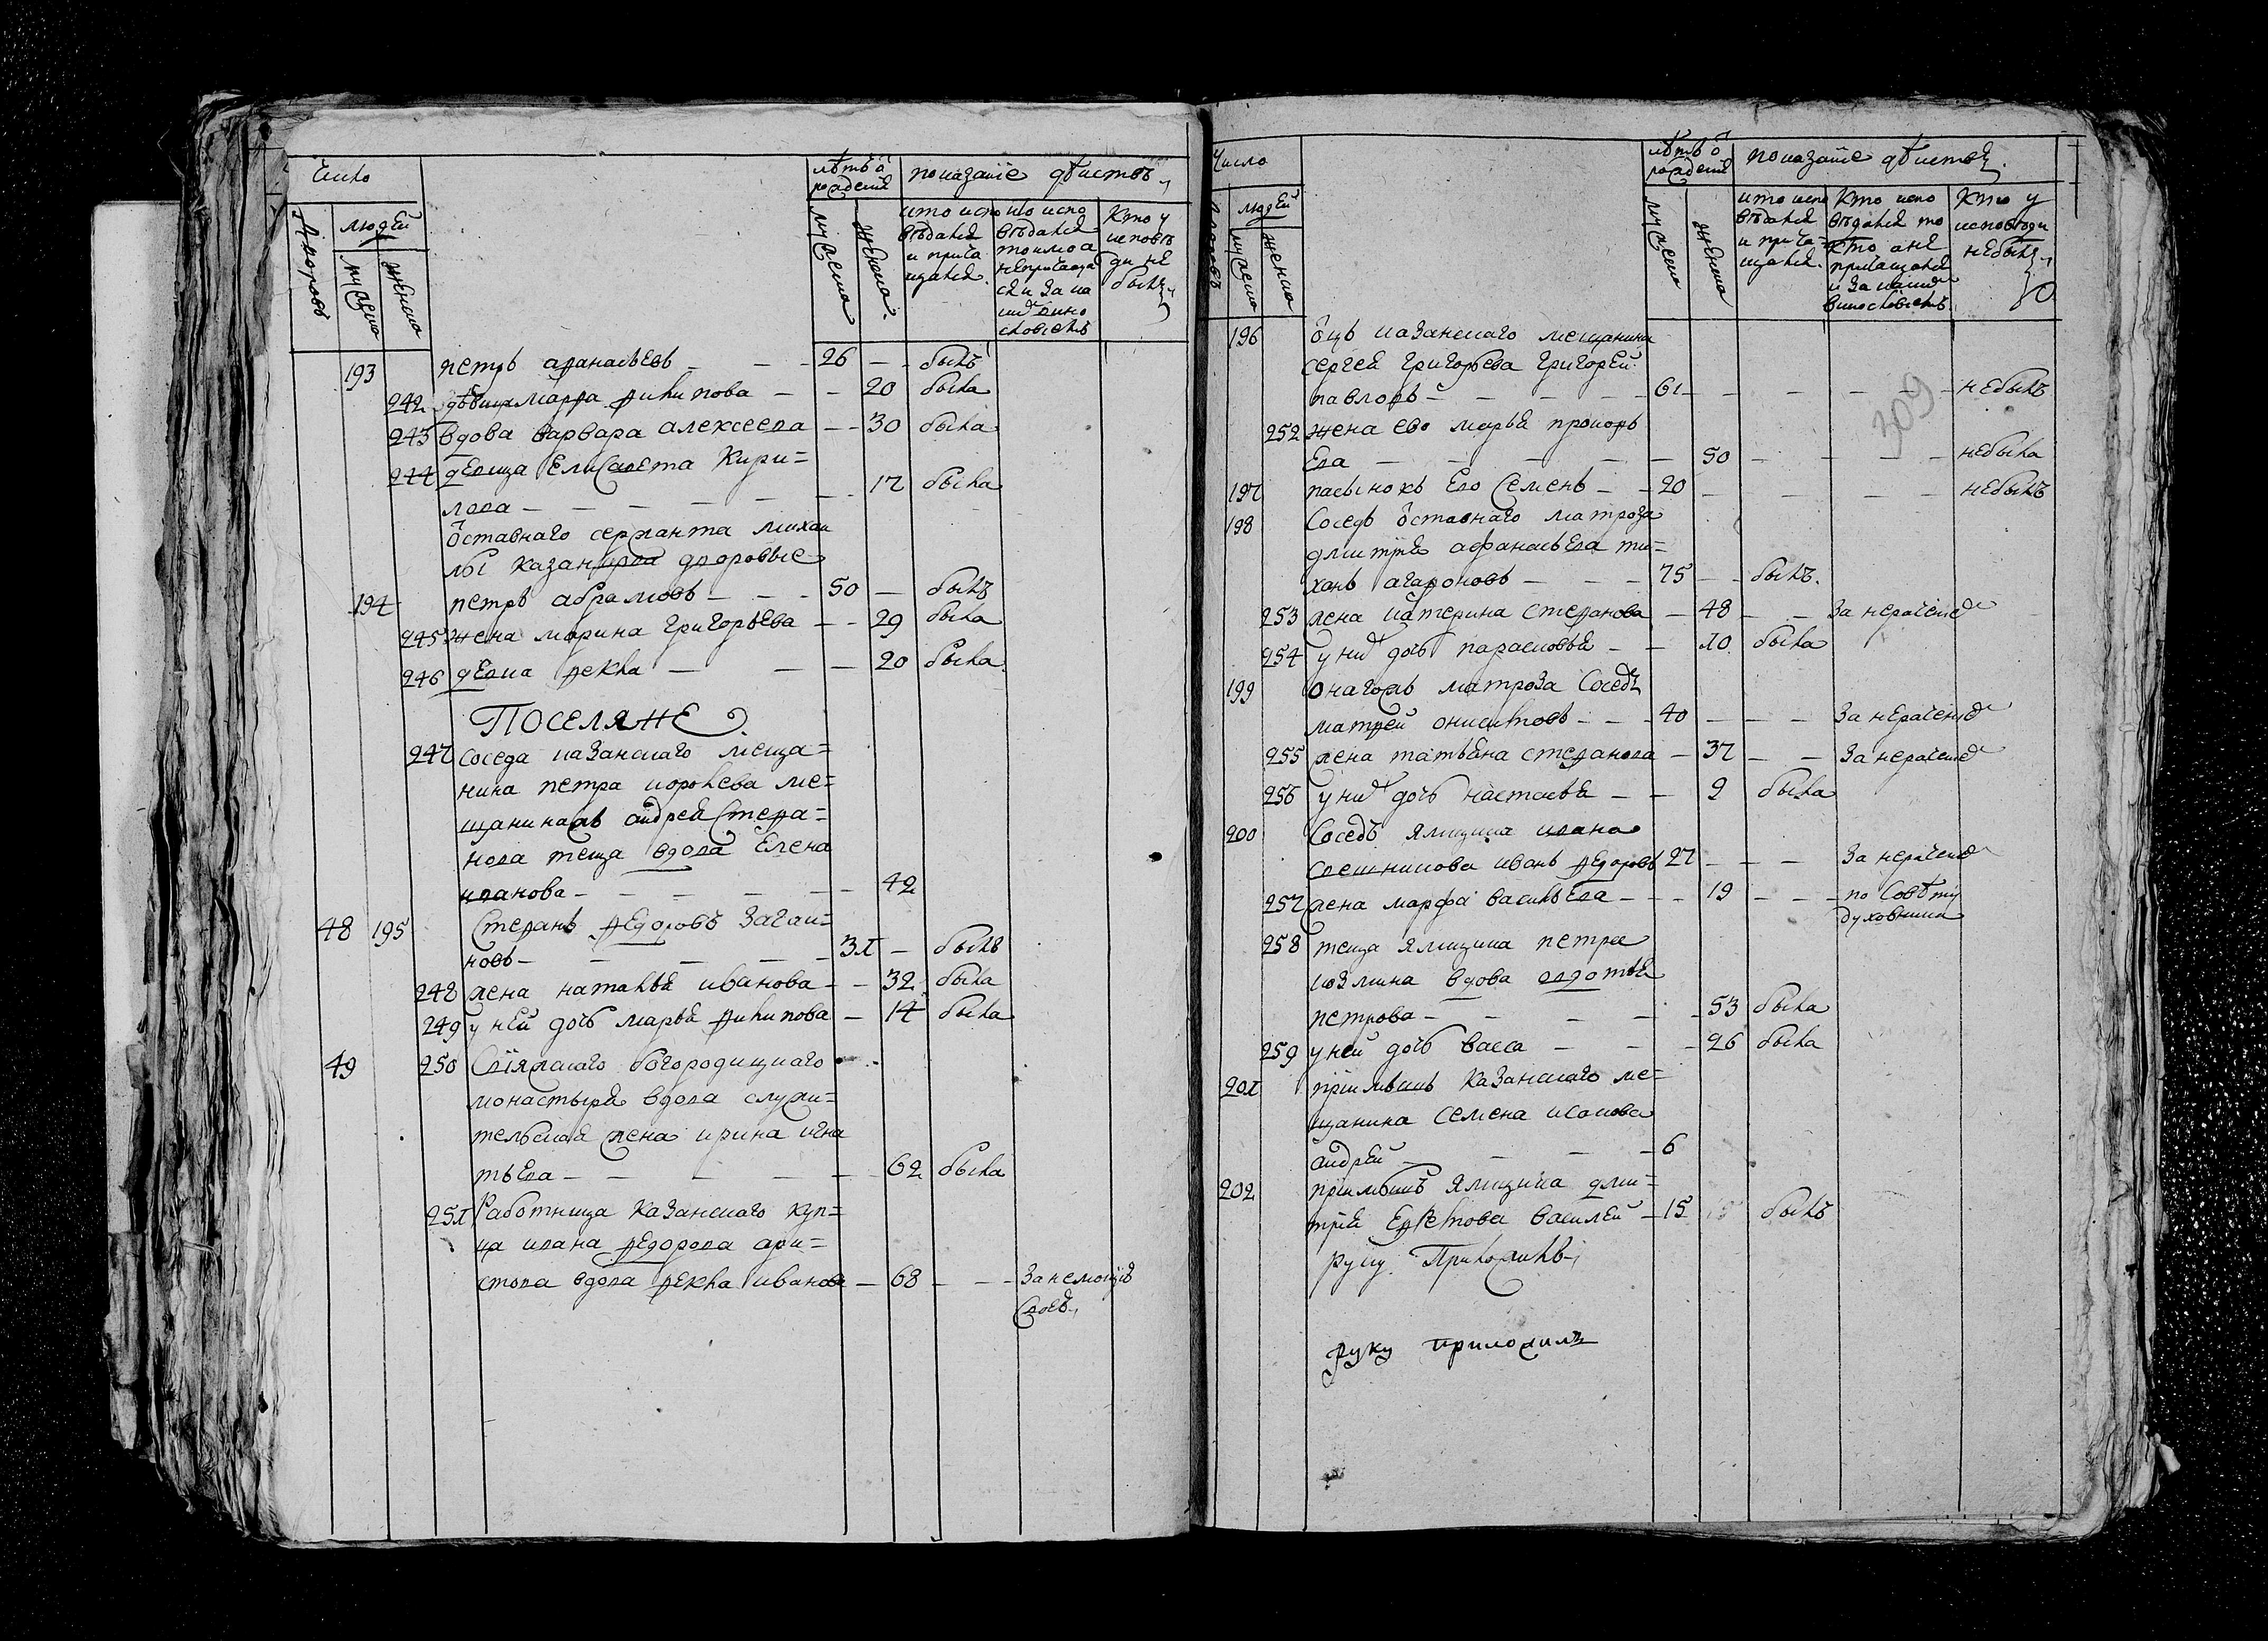 Число
лѣтъ ѿ рождения
показание дѣиствъ
Дворовъ
людей
мужеска
женска
мужеска
женска
кто испо
вѣдался
и прича
щался
кто испо
вѣдался
то кмо а
непричаща
ся и за ка
ким вино
словиемъ
Кто у
исповѣ
ди не
былъ
193 петръ афанасьевъ — — — 26 — былъ
242 дѣвица марфа филипова — — 20 была
243 вдова варвара алексеева — — 30 была
244 девица елисавета Кири=
лова — — — — — 17 была
ѿставнаго сержанта михаи
лы казанцова дворовые
194 петръ абрамовъ — — — 50 — былъ
245 жена марина григорьева — — 29 была
246 девка фекла — — — 20 была
ПОСЕЛЯНЕ
247 соседа казанскаго меща=
нина петра королева ме=
щанинажъ андрея Стефа=
нова теща вдова Елена
иванова — — — — — — 42
48 195 Стефанъ федоровъ загаи=
новъ — — — — — 31 — былъ
248 жена наталья иванова — — 32 была
249 у ней дочь марья филипова — 14 была
49 250 Свияжскаго богородицкаго
монастыря вдова служи=
тельская жена ирина игна
тьева — — — — — — 62 была
251 Работница казанскаго куп=
ца ивана федорова ари=
стова вдова фекла иванова — 68 — — За немощию
своею
Число
лѣтъ ѿ
рождения
показание дѣиствъ
Дворовъ
людей
мужеска
женска
мужеска
женска
кто испо
вѣдался
и прича=
щался
Кто испо
вѣдался то
кмо а не
причащался
и за каким
винословиемъ
Кто у
исповѣди
небылъ
309
196 ѿцъ казанскаго мещанина
сергея григорьева григорей
павловъ — — — — — 61 — — — — небылъ
252 жена ево марья прокофь
ева — — — — — 50 — — — — небыла
197 пасынокъ ево семенъ — — 20 — — — — небылъ
198 Соседъ ѿставнаго матроза
дмитрия афанасьева ти=
ханъ агафоновъ — — — 75 — — былъ
253 жена катерина стефанова — 48 — — за нерачениемъ
254 у них дочь парасковья — — 10 была
199 Онагожъ матроза соседъ
матфей онисимовъ — — — 40 — — — За нерачением
255 жена татьяна стефанова — 37 — — За нерачением
256 у них дочь настасья — — 9 была
200 Соседъ ямщика ивана
свешникова иванъ федоровъ 27 — — — За нерачением
257 жена марфа васильева — — — 19 — — — по Совѣту
духовника
258 теща ямщика петра
козмина вдова авдотья
петрова — — — — — — 53 была
259 у ней дочь васса — — — 26 была
201 приимышъ казанскаго ме=
щанина семена исакова
андрей — — — — — 6
202 приимышъ ямщика дми=
трия василей — 15 былъ
руку Приложилъ
руку приложилъ